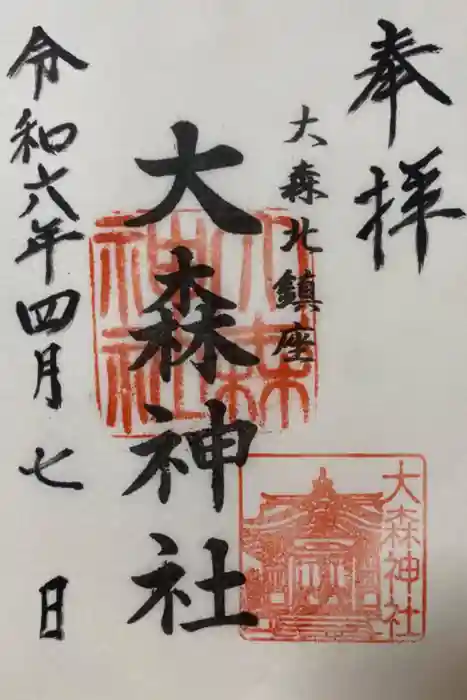 奉拝
大森北鎮座
大森神社
令和六年四月七日
大森神社
大森神社